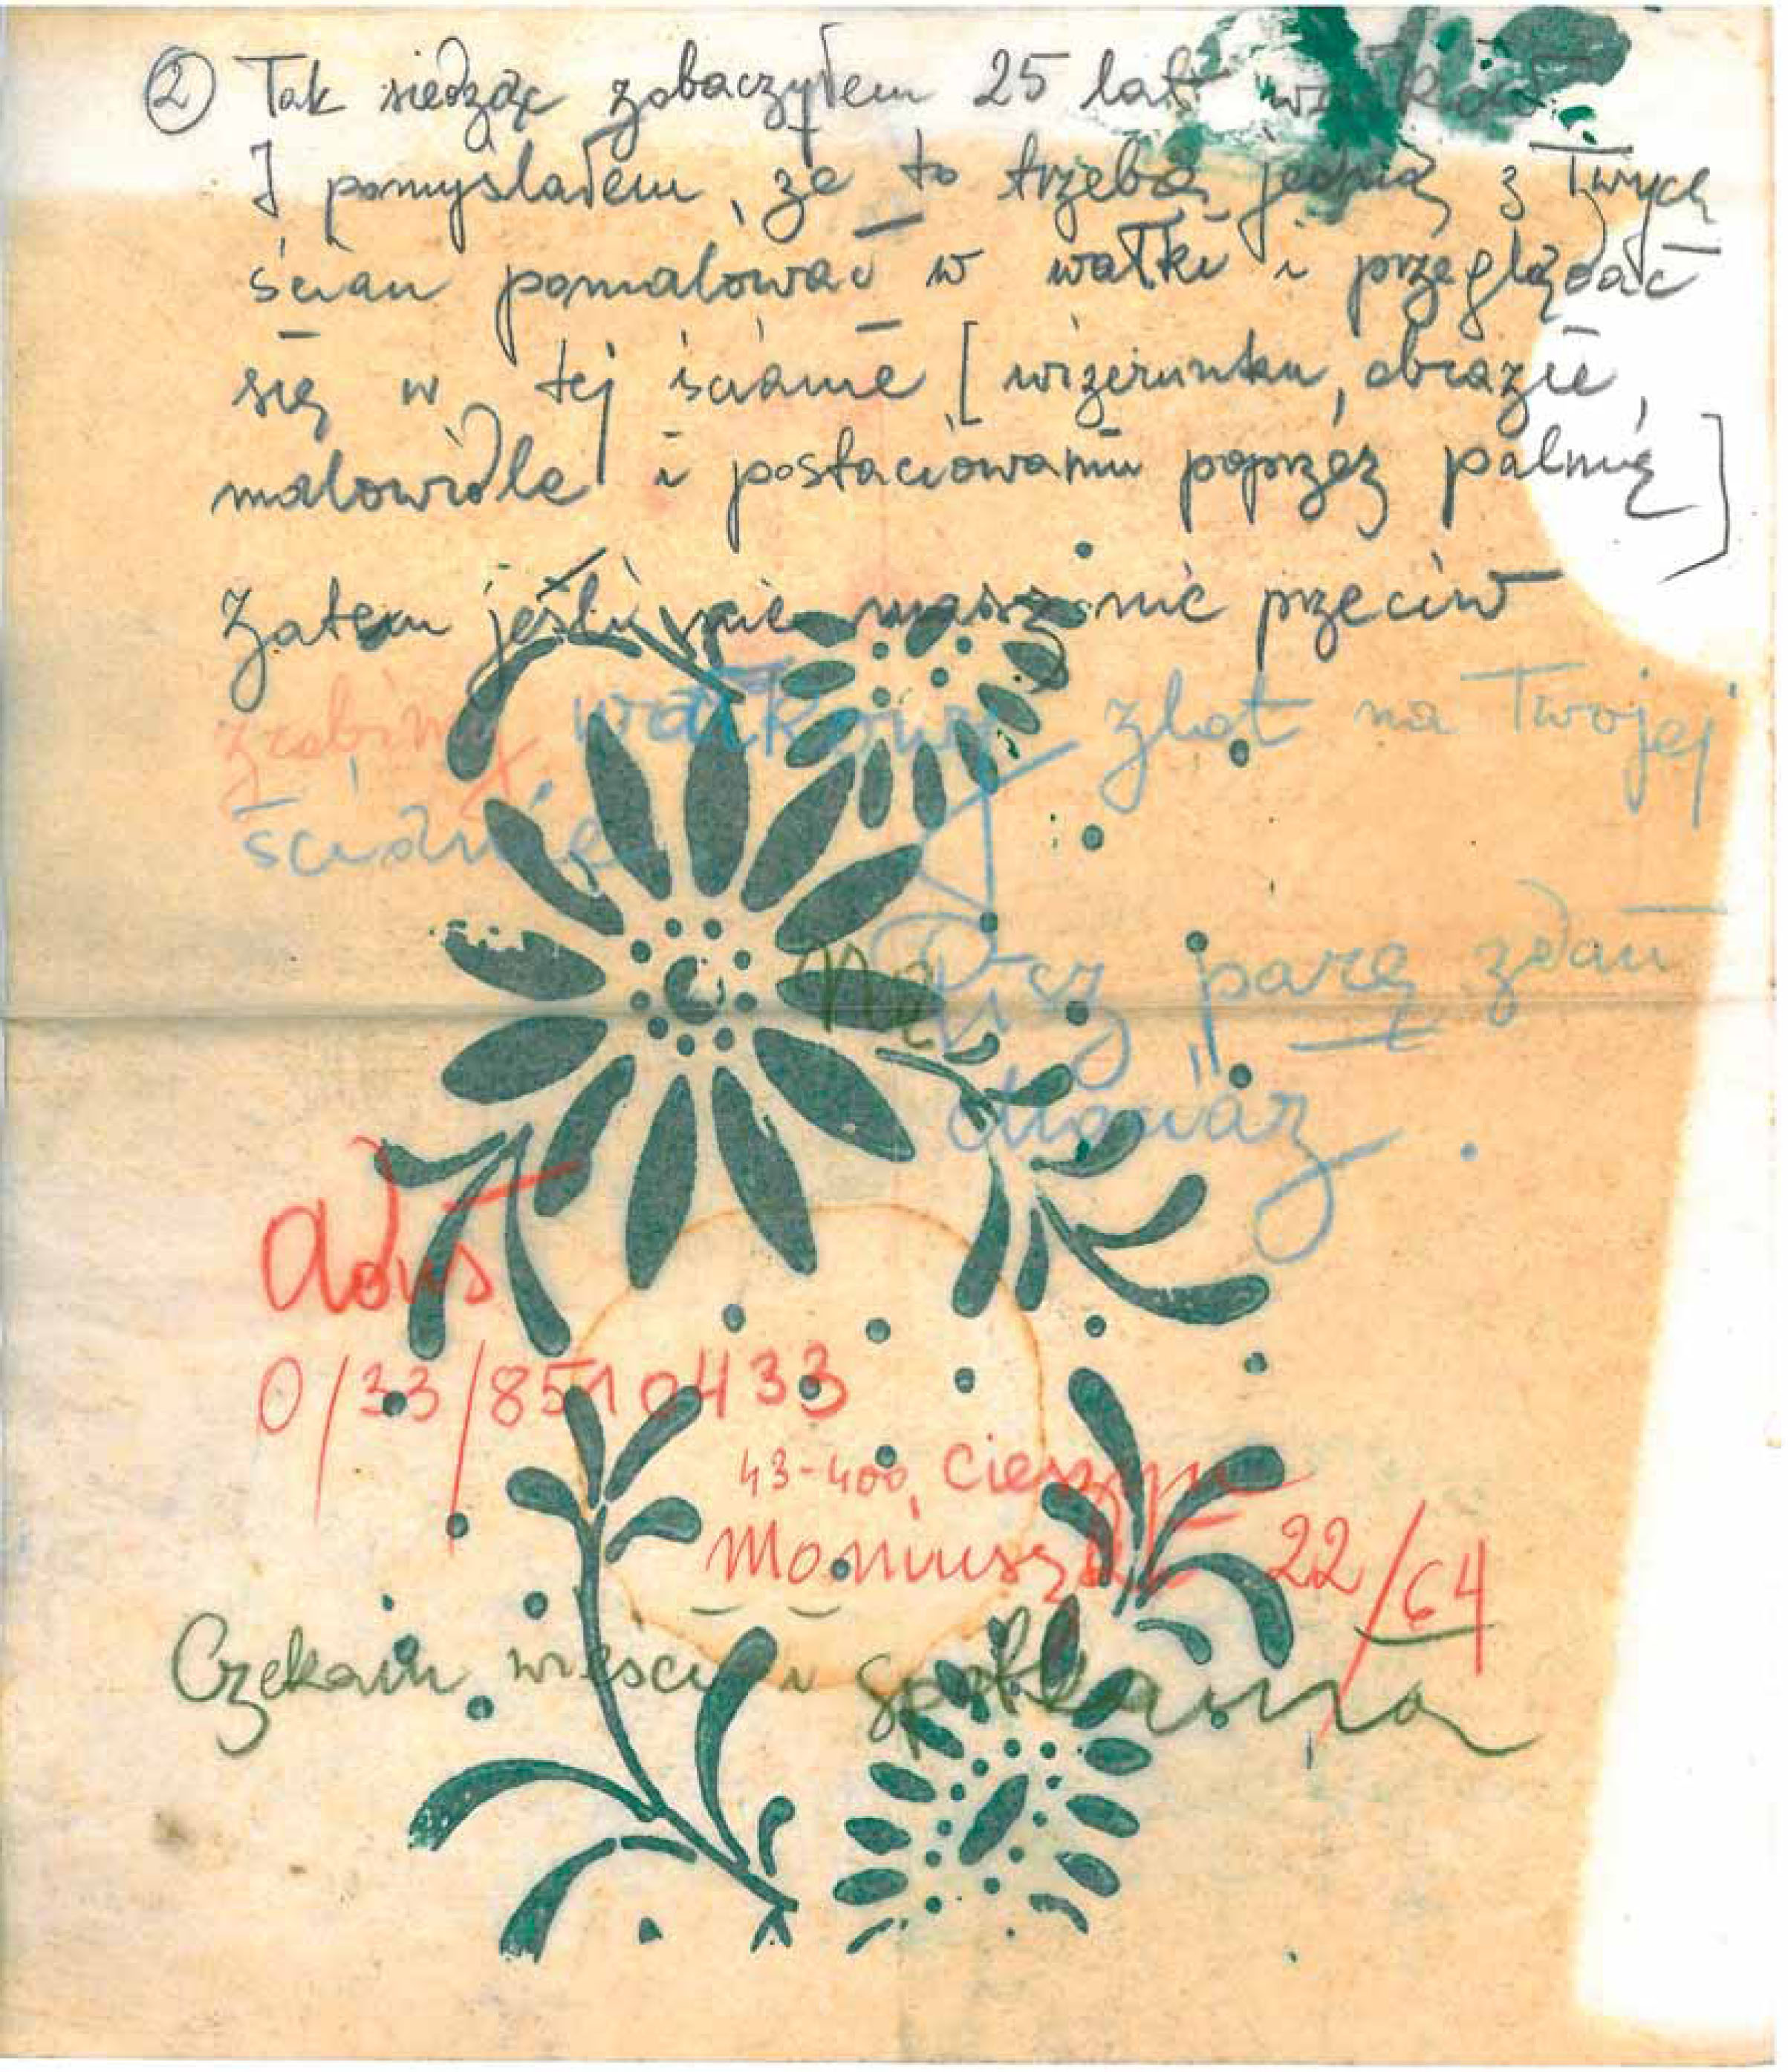 ② Tak siedząc zobaczyłem 25 lat
I pomyślałem, że to trzeba jedną z Twych
ścian pomalować w wałki i przeglądać
się w tej ścianie [wizerunku, obrazie,
malowidle i postaciowaniu poprzez palmę]
Zatem jeśli nie masz nic przeciw
zrobimy wałkowy zlot na Twojej
ścianie
Pisz parę zdań
Adus
0/33/8510433
43-400, Cieszyn
Moniuszki 22/64
Czekam wieści i spotkania